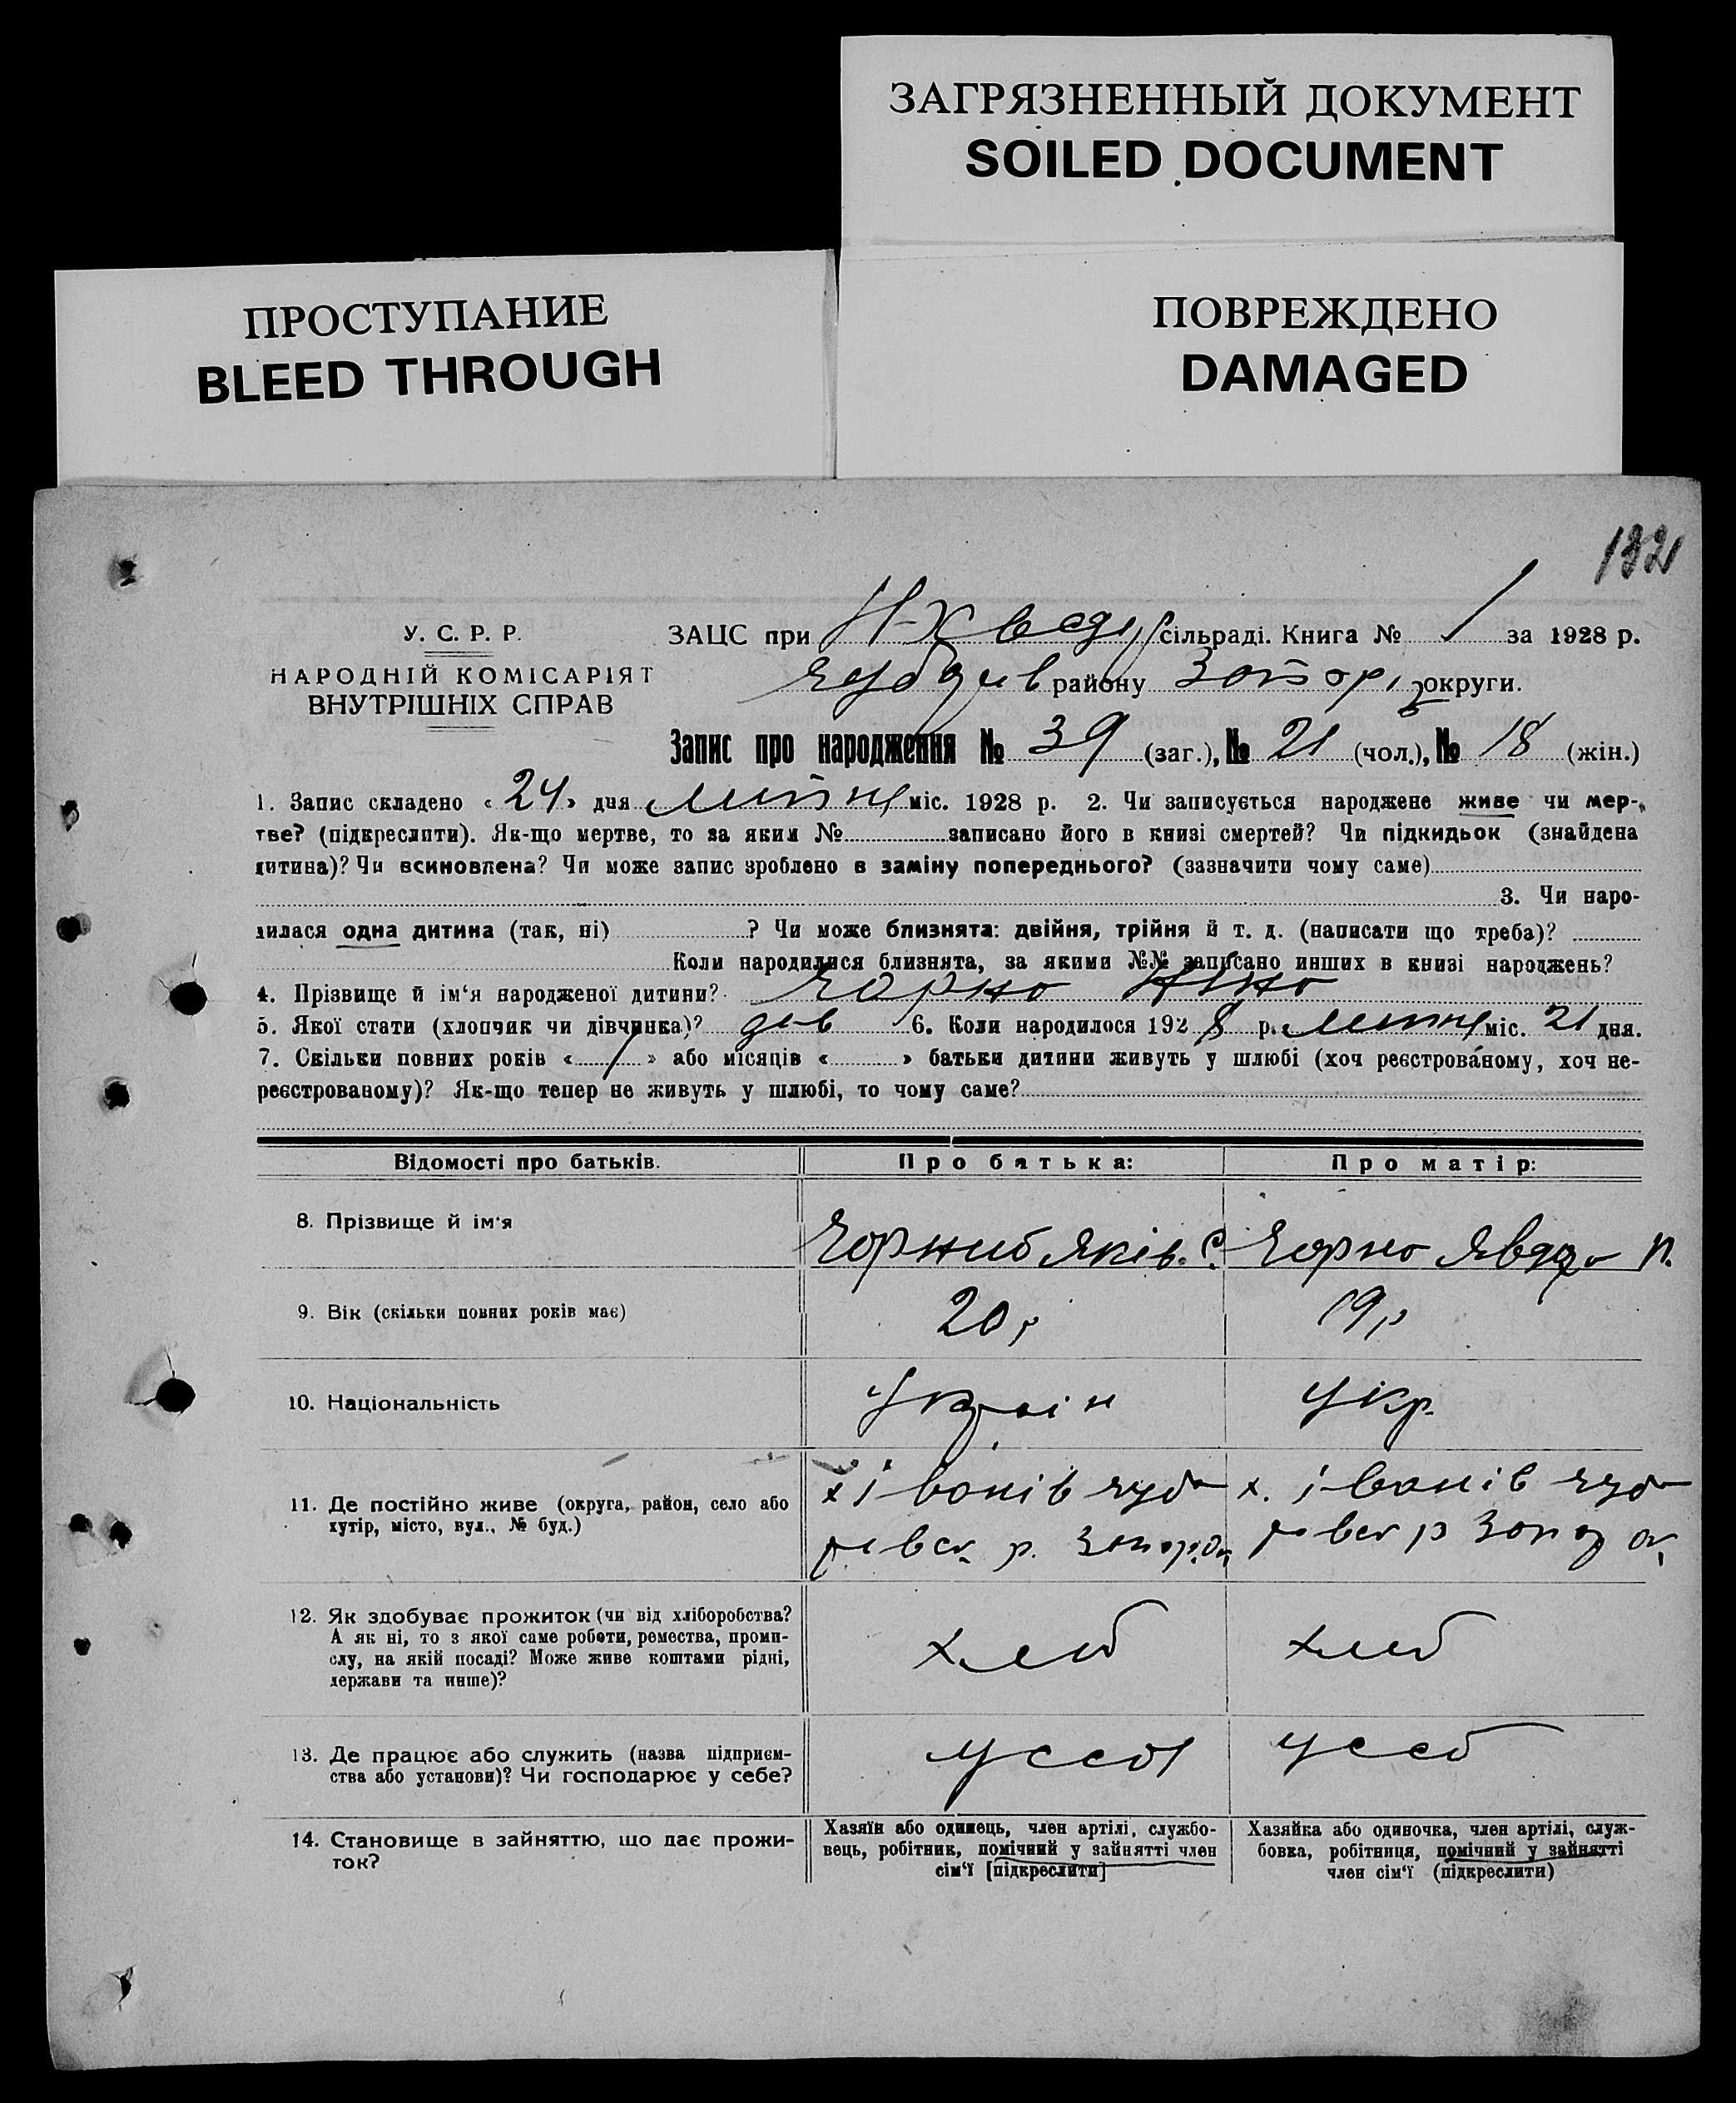 ЗАГРЯЗНЕННЫЙ ДОКУМЕНТ
SOILED DOCUMENT
ПРОСТУПАНИЕ
BLEED THROUGH
ПОВРЕЖДЕНО
DAMAGED
У. С. Р. Р.
НАРОДНІЙ КОМІСАРІЯТ
ВНУТРІШНІХ СПРАВ
ЗАЦС при сільраді. Книга № 1 за 1928 р.
району округи.
Запис про народження № 39 (заг.), № 21 (чол.), № 18 (жін.)
1. Запис складено « 24 » дня міс. 1928 р. 2. Чи записується народжене живе чи мер-
тве? (підкреслити). Як-що мертве, то за яким № записано його в книзі смертей? Чи підкидьок (знайдена
дитина)? Чи всиновлена? Чи може запис зроблено в заміну попереднього? (зазначити чому саме)
3. Чи наро-
дилася одна дитина (так, ні) ? Чи може близнята: двійня, трійня й т. д. (написати що треба)?
Коли народилися близнята, за якими №№ записано инших в книзі народжень?
4. Прізвище й ім‘я народженої дитини? Чорна Ніна
5. Якої стати (хлопчик чи дівчинка)? дів 6. Коли народилося 1928 р. міс. 21 дня.
7. Скільки повних років « 1 » або місяців « » батьки дитини живуть у шлюбі (хоч реєстрованому, хоч не-
реєстрованому)? Як-що тепер не живуть у шлюбі, то чому саме?
Відомості про батьків. Про батька: Про матір:
8. Прізвище й ім‘я Чорний Яків. С. Чорна Явдо П.
9. Вік (скільки повних років має) 20 р 19 р
10. Національність Україн Укр.
11. Де постійно живе (округа, район, село або х Іванів х. Іванів
хутір, місто, вул., № буд.) р. р
12. Як здобуває прожиток (чи від хліборобства?
А як ні, то з якої саме роботи, ремества, проми-
слу, на якій посаді? Може живе коштами рідні, хліб хліб
держави та инше)?
13. Де працює або служить (назва підприєм- у себе у себ
ства або установи)? Чи господарює у себе?
14. Становище в зайняттю, що дає прожи-
ток?
Хазяїн або одинець, член артілі, службо-
вець, робітник, помічний у зайнятті член
сім‘ї [підкреслити]
Хазяйка або одиночка, член артілі, служ-
бовка, робітниця, помічний у зайнятті
член сім‘ї (підкреслити)